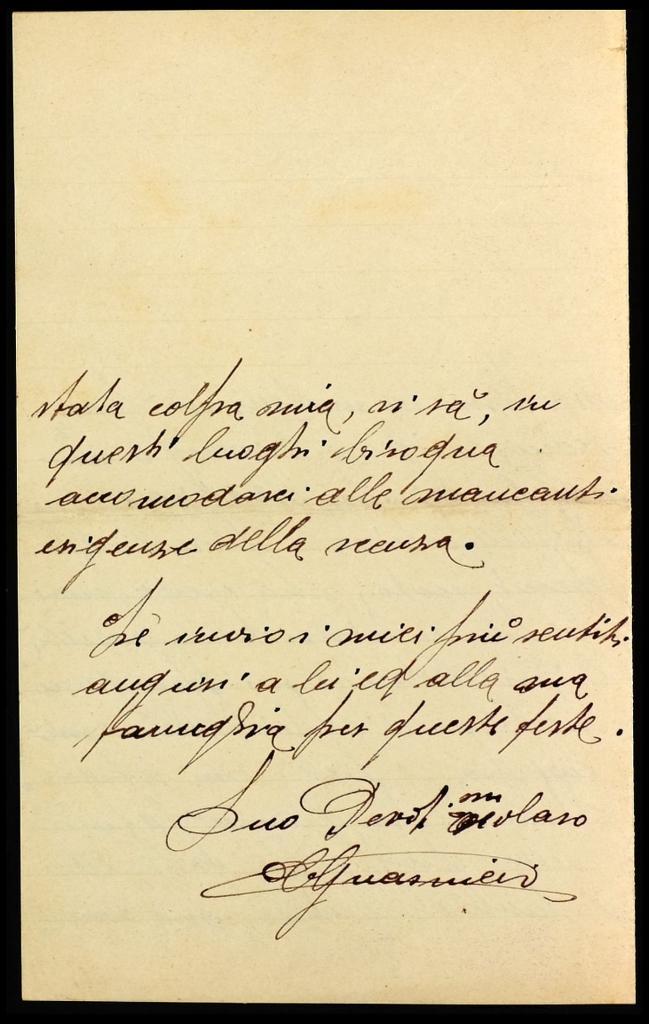 stata colpa mia, si sà, in
questi luoghi bisogna
accomodarsi alle mancanti
esigenze della scenza.
Le invio i miei più sentiti
auguri a lei ed alla sua
famiglia per queste feste.
Suo Devot.mo scolaro
Guarnieri